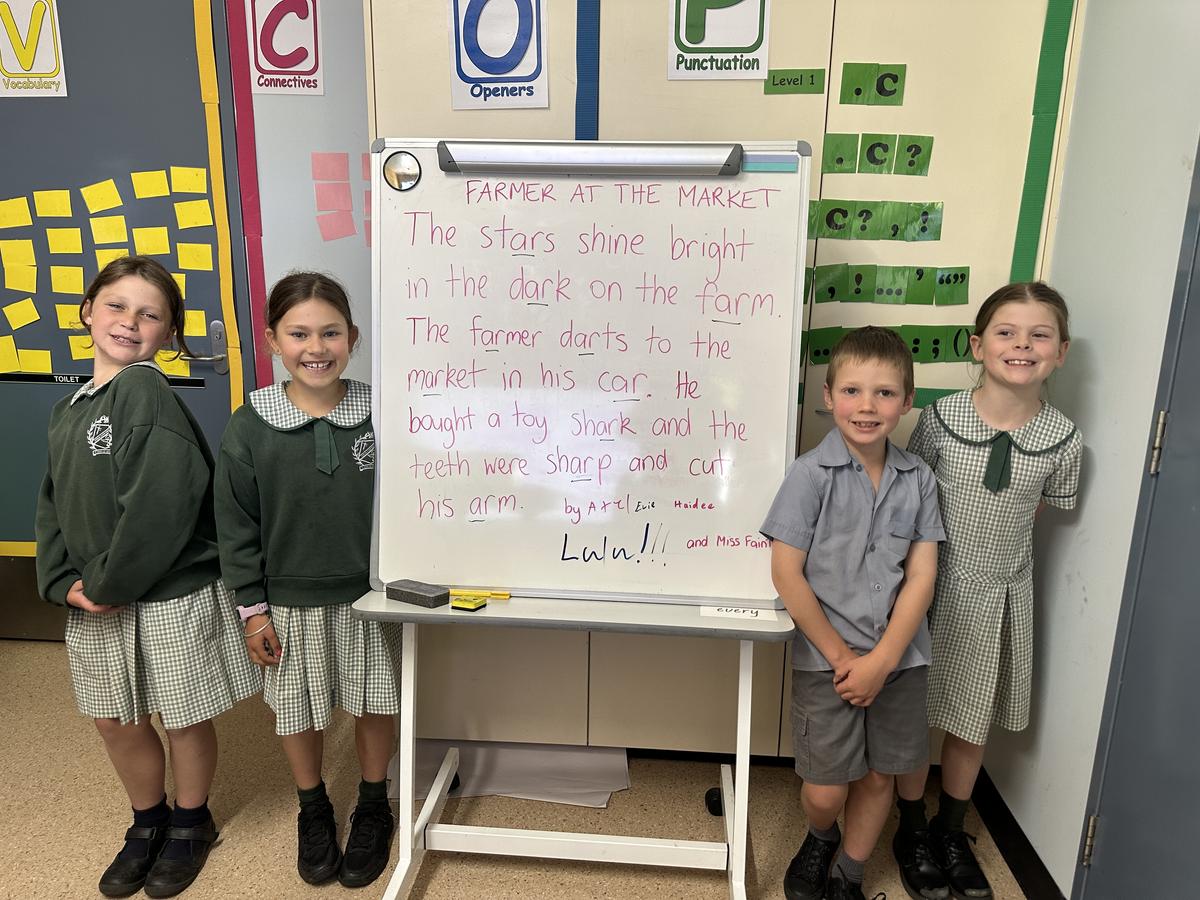 V
Vocabulary
C
Connectives
O
Openers
P
Punctuation
Level 1
. C
. C ?
C ? , !
, ! ... ' “”
... : ; ()
TOILET
FARMER AT THE MARKET
The stars shine bright
in the dark on the farm.
The farmer darts to the
market in his car. He
bought a toy shark and the
teeth were sharp and cut
his arm. by Axel Evie Haidee
Lulu!!! and Miss Faint
every